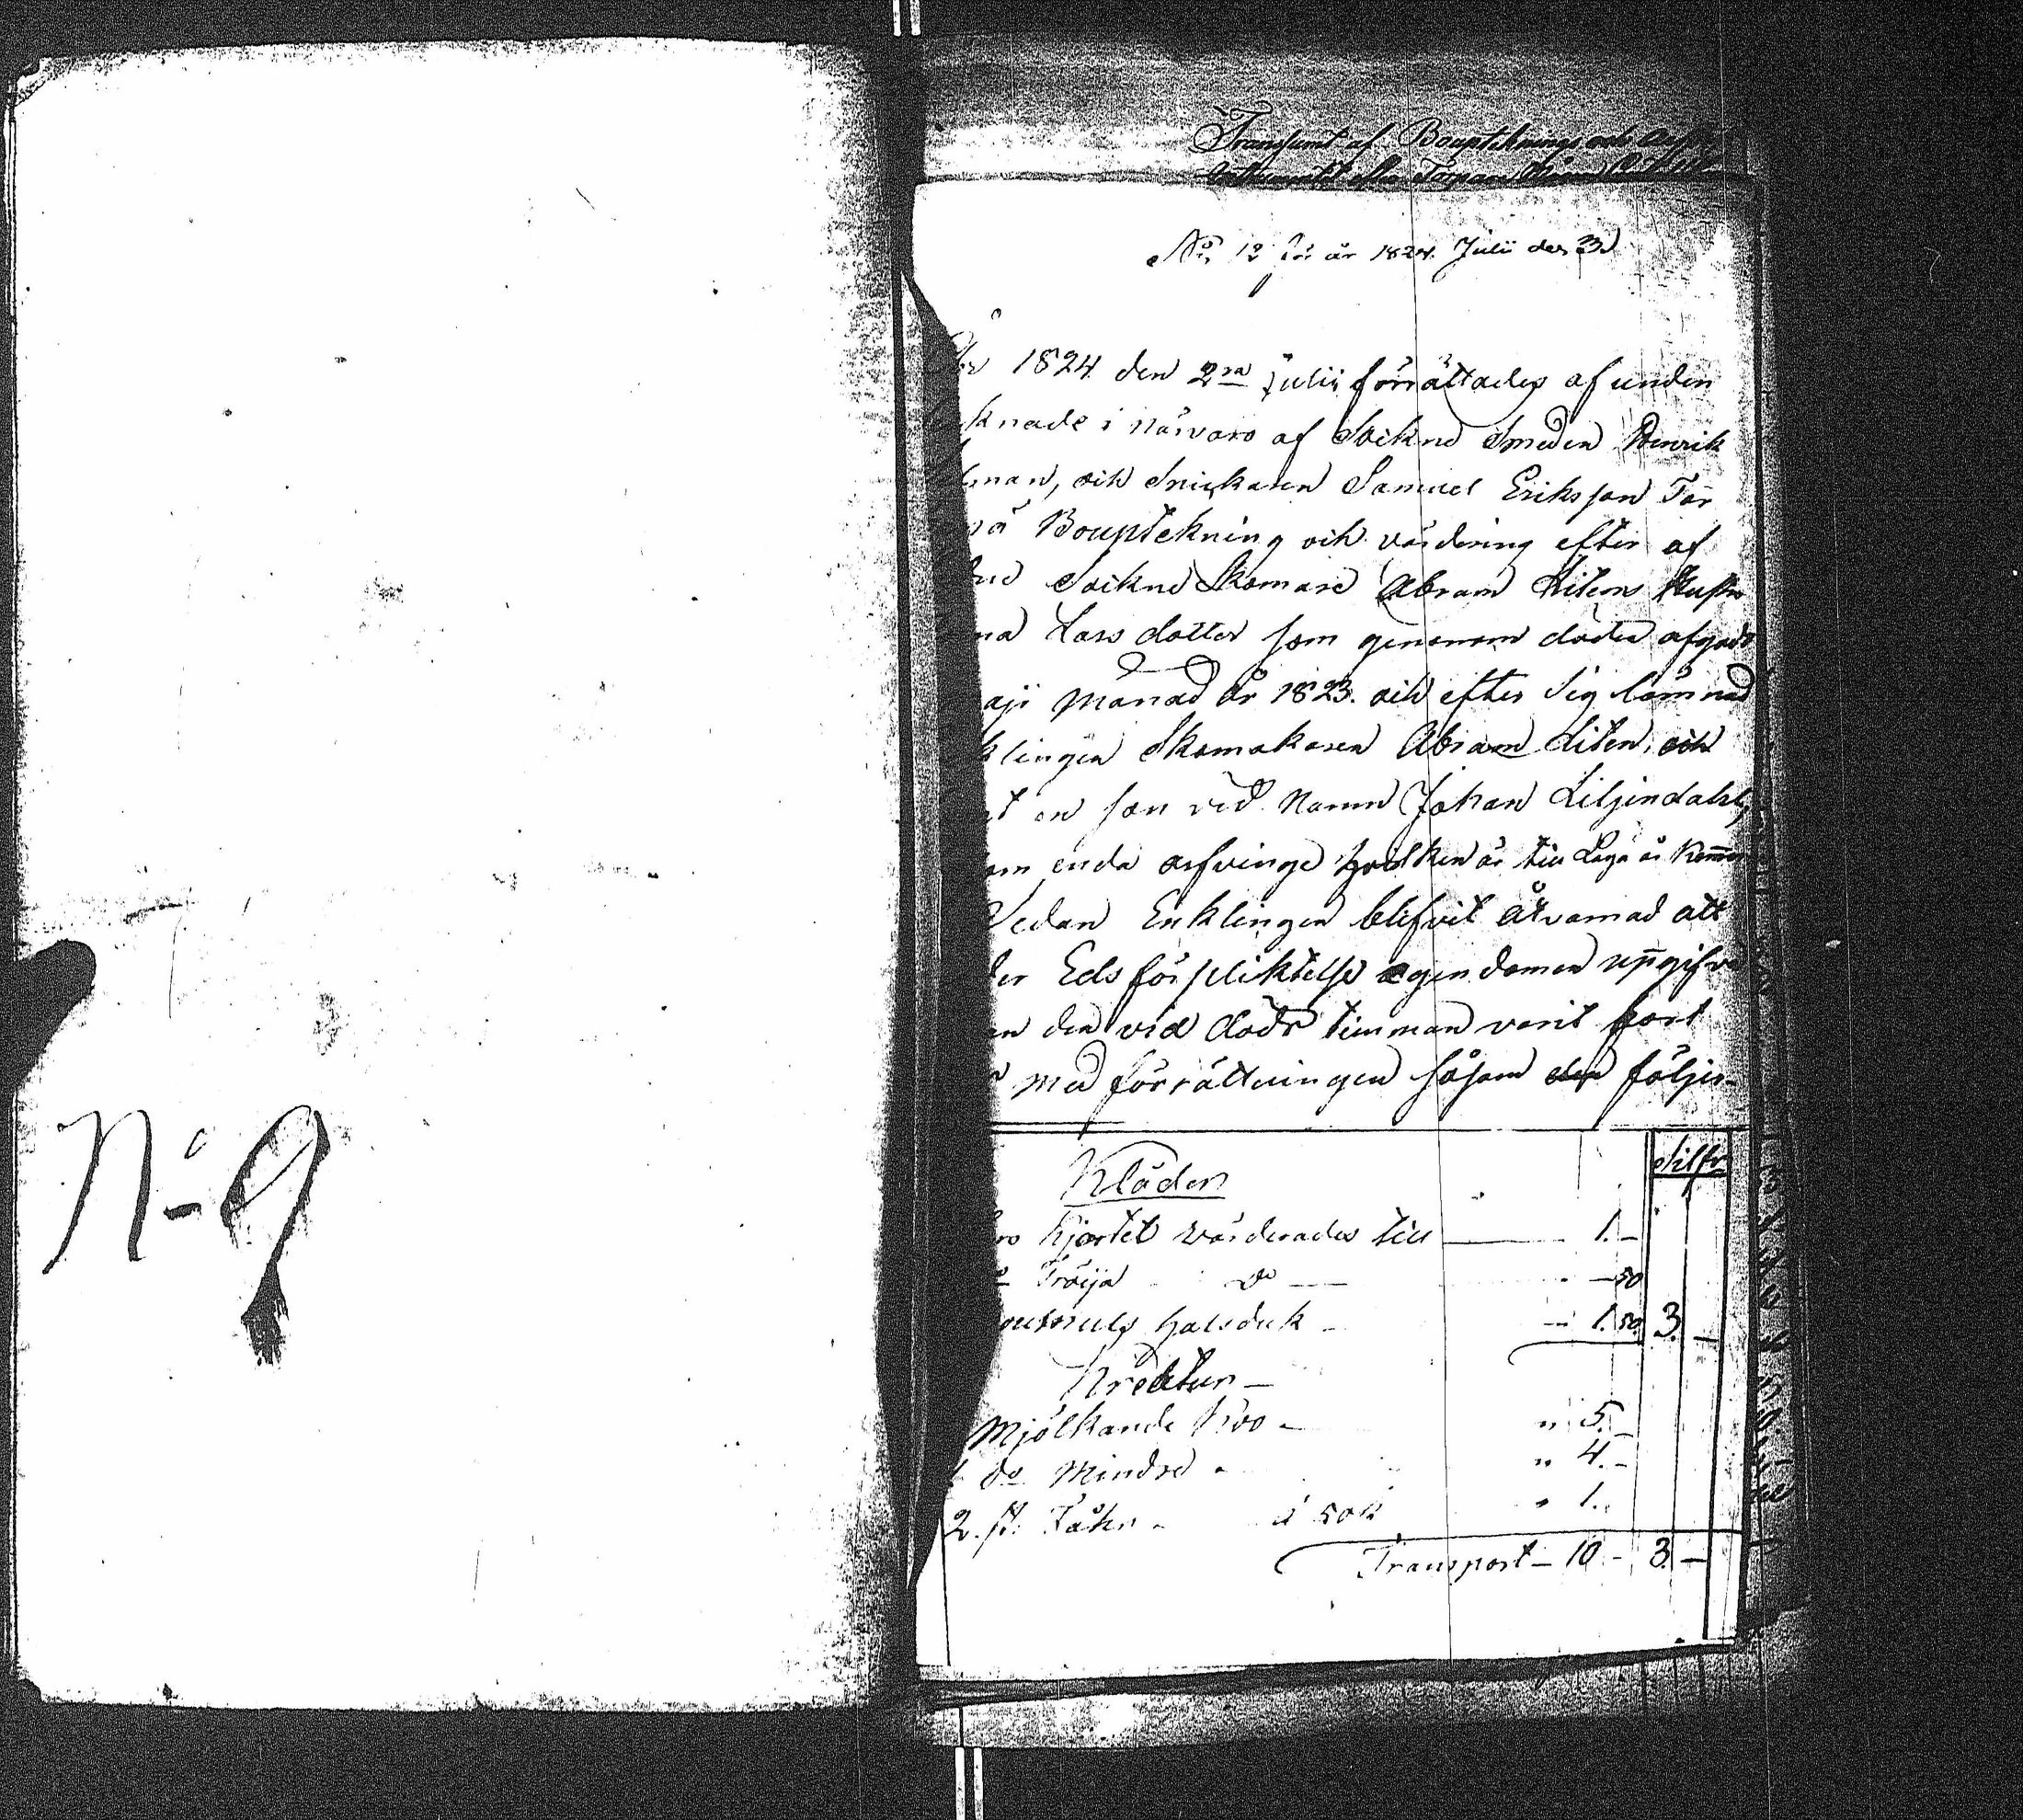 Transsumt af Boupteknings och
N:o 12 för år 1824. Julii den 3.
1824 den 2ra Julii förrättades af unden
knade i närvaro af Sockne Smeden Henrik
man, och Snickaren Samuel Eriksson Tör
Bouptekning och värdering efter af
Sockne Skomare Abram Litens Hustru
na Lars dotter som genomm döden afgådt
aji Månad år 1823. och efter sig lämnad
klingen Skomakaren Abram Liten, och
t en son vid Namn Johan Liljendahl,
om enda arfvinge hvilken är till Laga år
Sedan Enklingen blifvit åtvarnad att
der Eds förpliktelse egendomen uppgifva
en den vid döds timman varit fort
med förrättningen såsom den följer
Silfr
Kläder
ro Kjortel värderades till 1.-
Tröija do -50
Halsduk - 1.50. 3. -
Kreatur -
Mjölkande Koo - " 5. -
1 do Mindre - " 4. -
2. st. Fåhr - á 50 k " 1.
Transport - 10. - 3. -
N:o 9